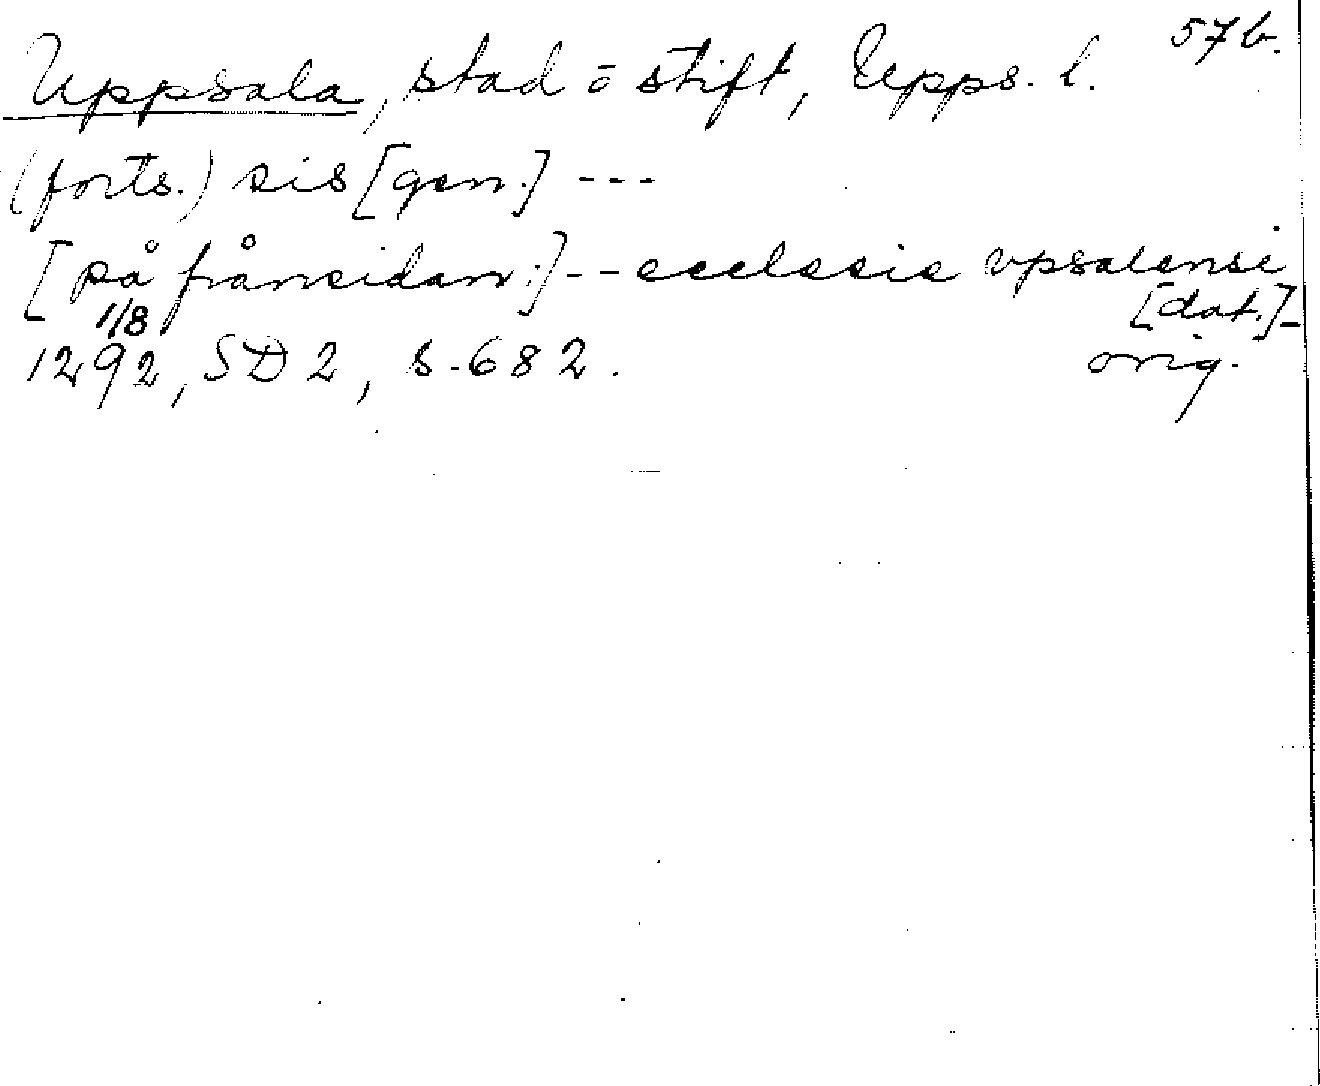 57b.
Uppsala, stad o stift, Upps. l.
(forts.) sis [gen.] ---
[på frånsidan:] -- ecclesie vpsalensi
[dat.] -
1/8
1292, SD 2, s. 682.
orig.